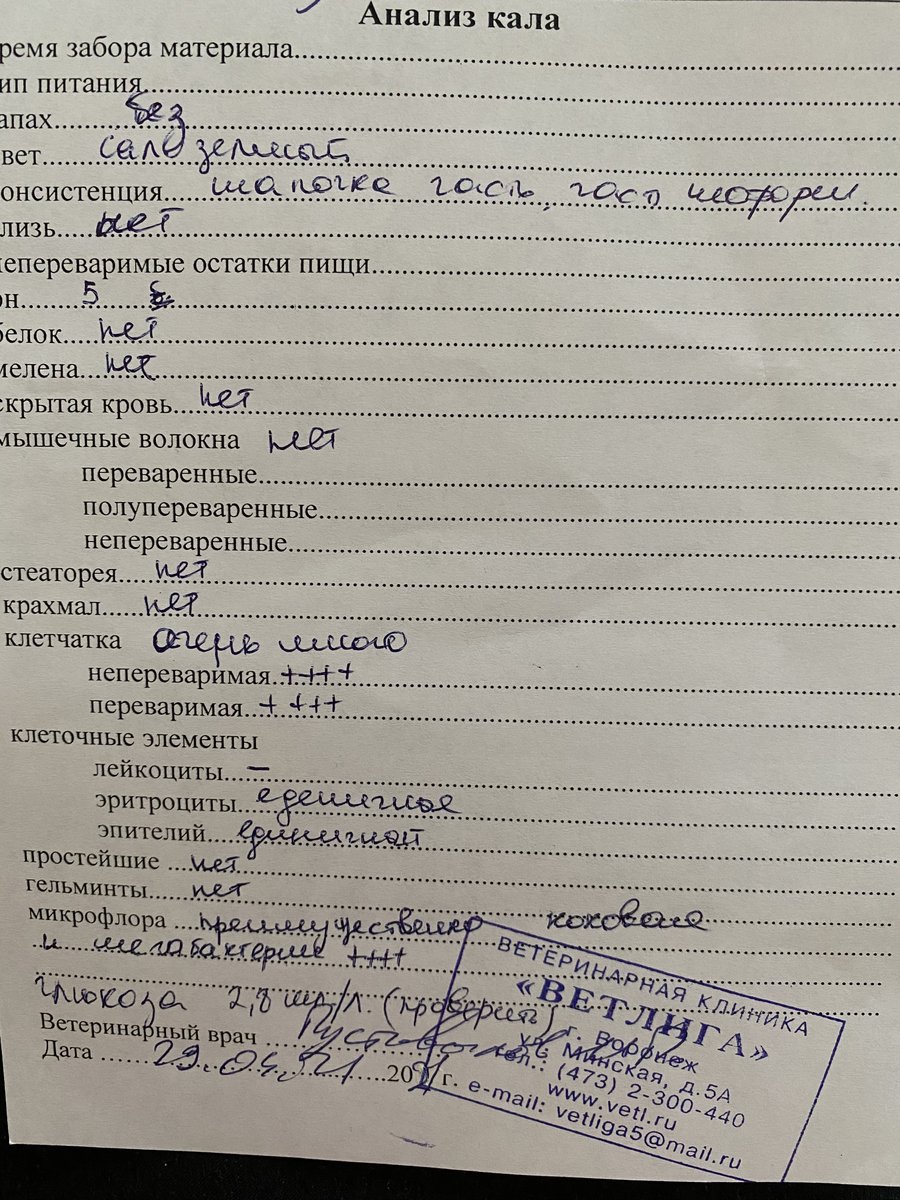 Анализ кала
ремя забора материала
ип питания
апах без
вет сало зелный
онсистенция шапочка часть, часть
лизь нет
непереваримые остатки пищи
он 5
белок нет
мелена нет
скрытая кровь нет
мышечные волокна нет
переваренные
полупереваренные
непереваренные
стеаторея нет
крахмал нет
клетчатка очень много
непереваримая ++++
переваримая ++++
клеточные элементы
лейкоциты –
эритроциты
эпителий единичный
простейшие нет
гельминты нет
микрофлора преимущественно кокковая
и мегабактерии ++++
глюкоза 2,8 (кровь)
Ветеринарный врач
Дата 29.04.21 2021 г.
ВЕТЕРИНАРНАЯ КЛИНИКА
«ВЕТЛИГА»
г. Воронеж
ул. Минская, д.5А
тел.: (473) 2-300-440
www.vetl.ru
e-mail: vetliga5@mail.ru